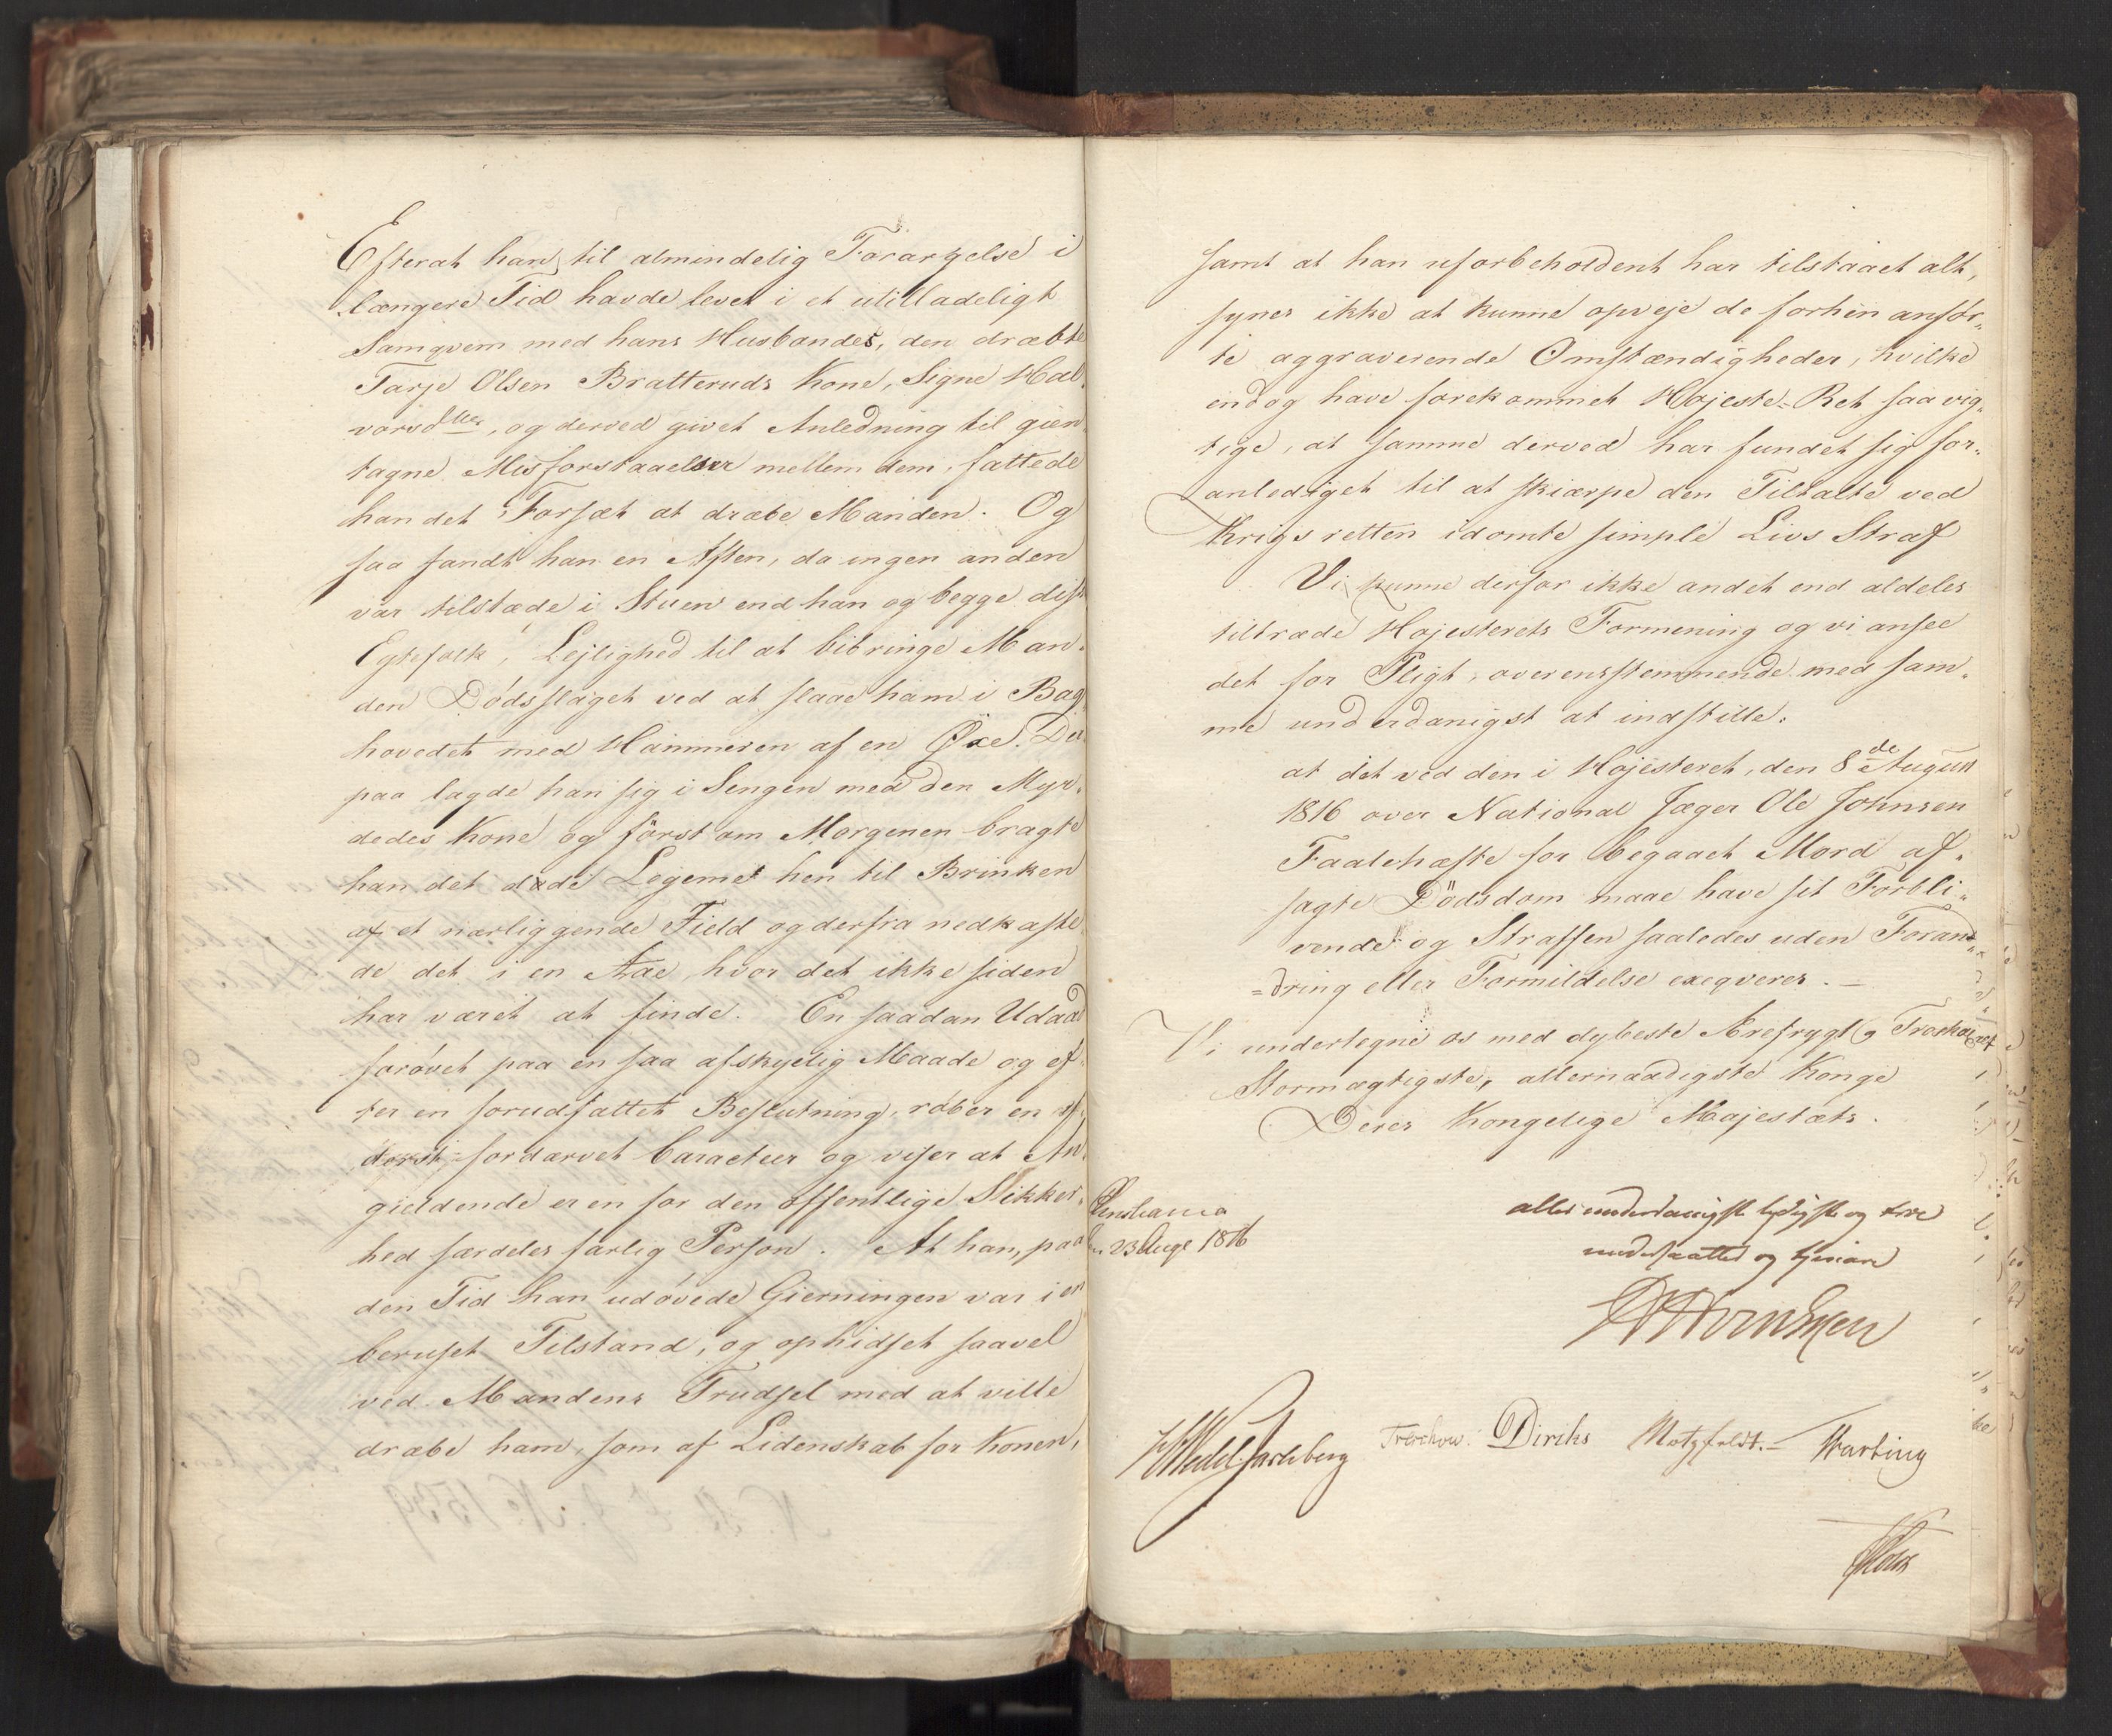 Efterat han til almindelig Forargelse i
længere Tid havde levet i et utilladeligt
Samqvem med hans Husbondes, den dræbte
Tarje Olsen Bratteruds Kone, Signe Hal-
vorsdtter, og derved givet Anledning til gien-
tagne Misforstaaelser mellem dem, fattede
han det Forsæt at dræbe Manden. Og
saa fandt han en Aften, da ingen anden
var tilstæde i Stuen end han og begge disse
Egtefolk, Lejlighed til at bibringe Man-
den Dødsslaget ved at slaae ham i Bag-
hovedet med Hammeren af en Øxe. Der-
paa lagde han sig i Sengen med den Myr-
dedes Kone og først om Morgenen bragte
han det døde Legeme hen til Brinken
af et nærliggende Field og derfra nedkaste-
de det i en Aae, hvor det ikke siden
har været at finde. En saadan Udaad
forøvet paa en saa afskyelig Maade og ef-
ter en forudfattet Beslutning, røber en yp-
derst fordærvet Caracteer og viser at An-
gieldende er en for den offentlige Sikker-
hed særdeles farlig Person. At han, paa
den Tid han udøvede Gierningen var i en
beruset Tilstand, og ophidset saavel
ved Mandens Trudsel med at ville
dræbe ham, som af Lidenskab for Konen,
samt at han uforbeholdent har tilstaaet alt,
synes ikke at kunne opveje de forhen anfør-
te aggraverende Omstændigheder, hvilke
endog have forekommet Høieste-Ret saa vig-
tige, at samme derved har fundet sig for-
anlediget til at skiærpe den Tiltalte ved
Krigsretten idømte simple Livs Straf
Vi kunne derfor ikke andet end aldeles
tiltræde Højesterets Formening og vi ansee
det for Pligt, overensstemmende med sam-
me underdanigst at indstille:
at det ved den i Højesteret, den 8de August
1816 over National Jæger Ole Johnsen
Faalehæfte for begaaet Mord af-
sagte Dödsdom maae have sit Forbli-
vende og Straffen saaledes uden Foran-
=dring eller Formildelse exeqveres. —
Vi undertegne os med dybeste Ærefrygt og Troskab
Stormægtigste, allernaadigste Konge
Deres Kongelige Majestæts.
Christiania
den 23 Aug 1816
allerunderdanigste lydigste og troe
undersaatter og tjenere
Wedel Jarlsberg Treschow. Diriks Motzfeldt.— Krafting